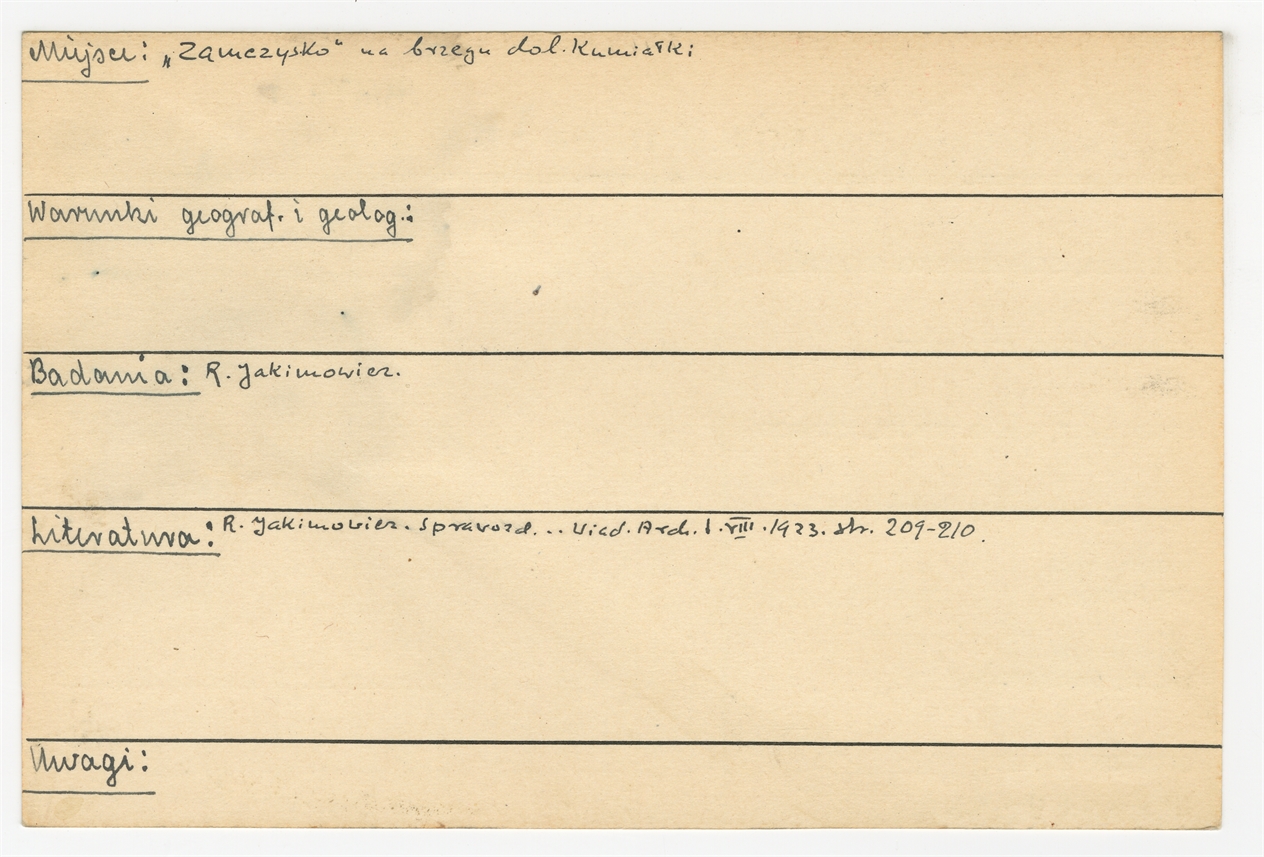 Miejsce: „Zamczysko" na brzegu dol. Kumiałki
Warunki geograf. i geolog.:
Badania: R. Jakimowicz.
Literatura: R. Jakimowicz. Sprawozd... Wiad. Arch. t. VIII. 1923. str. 209-210.
Uwagi: